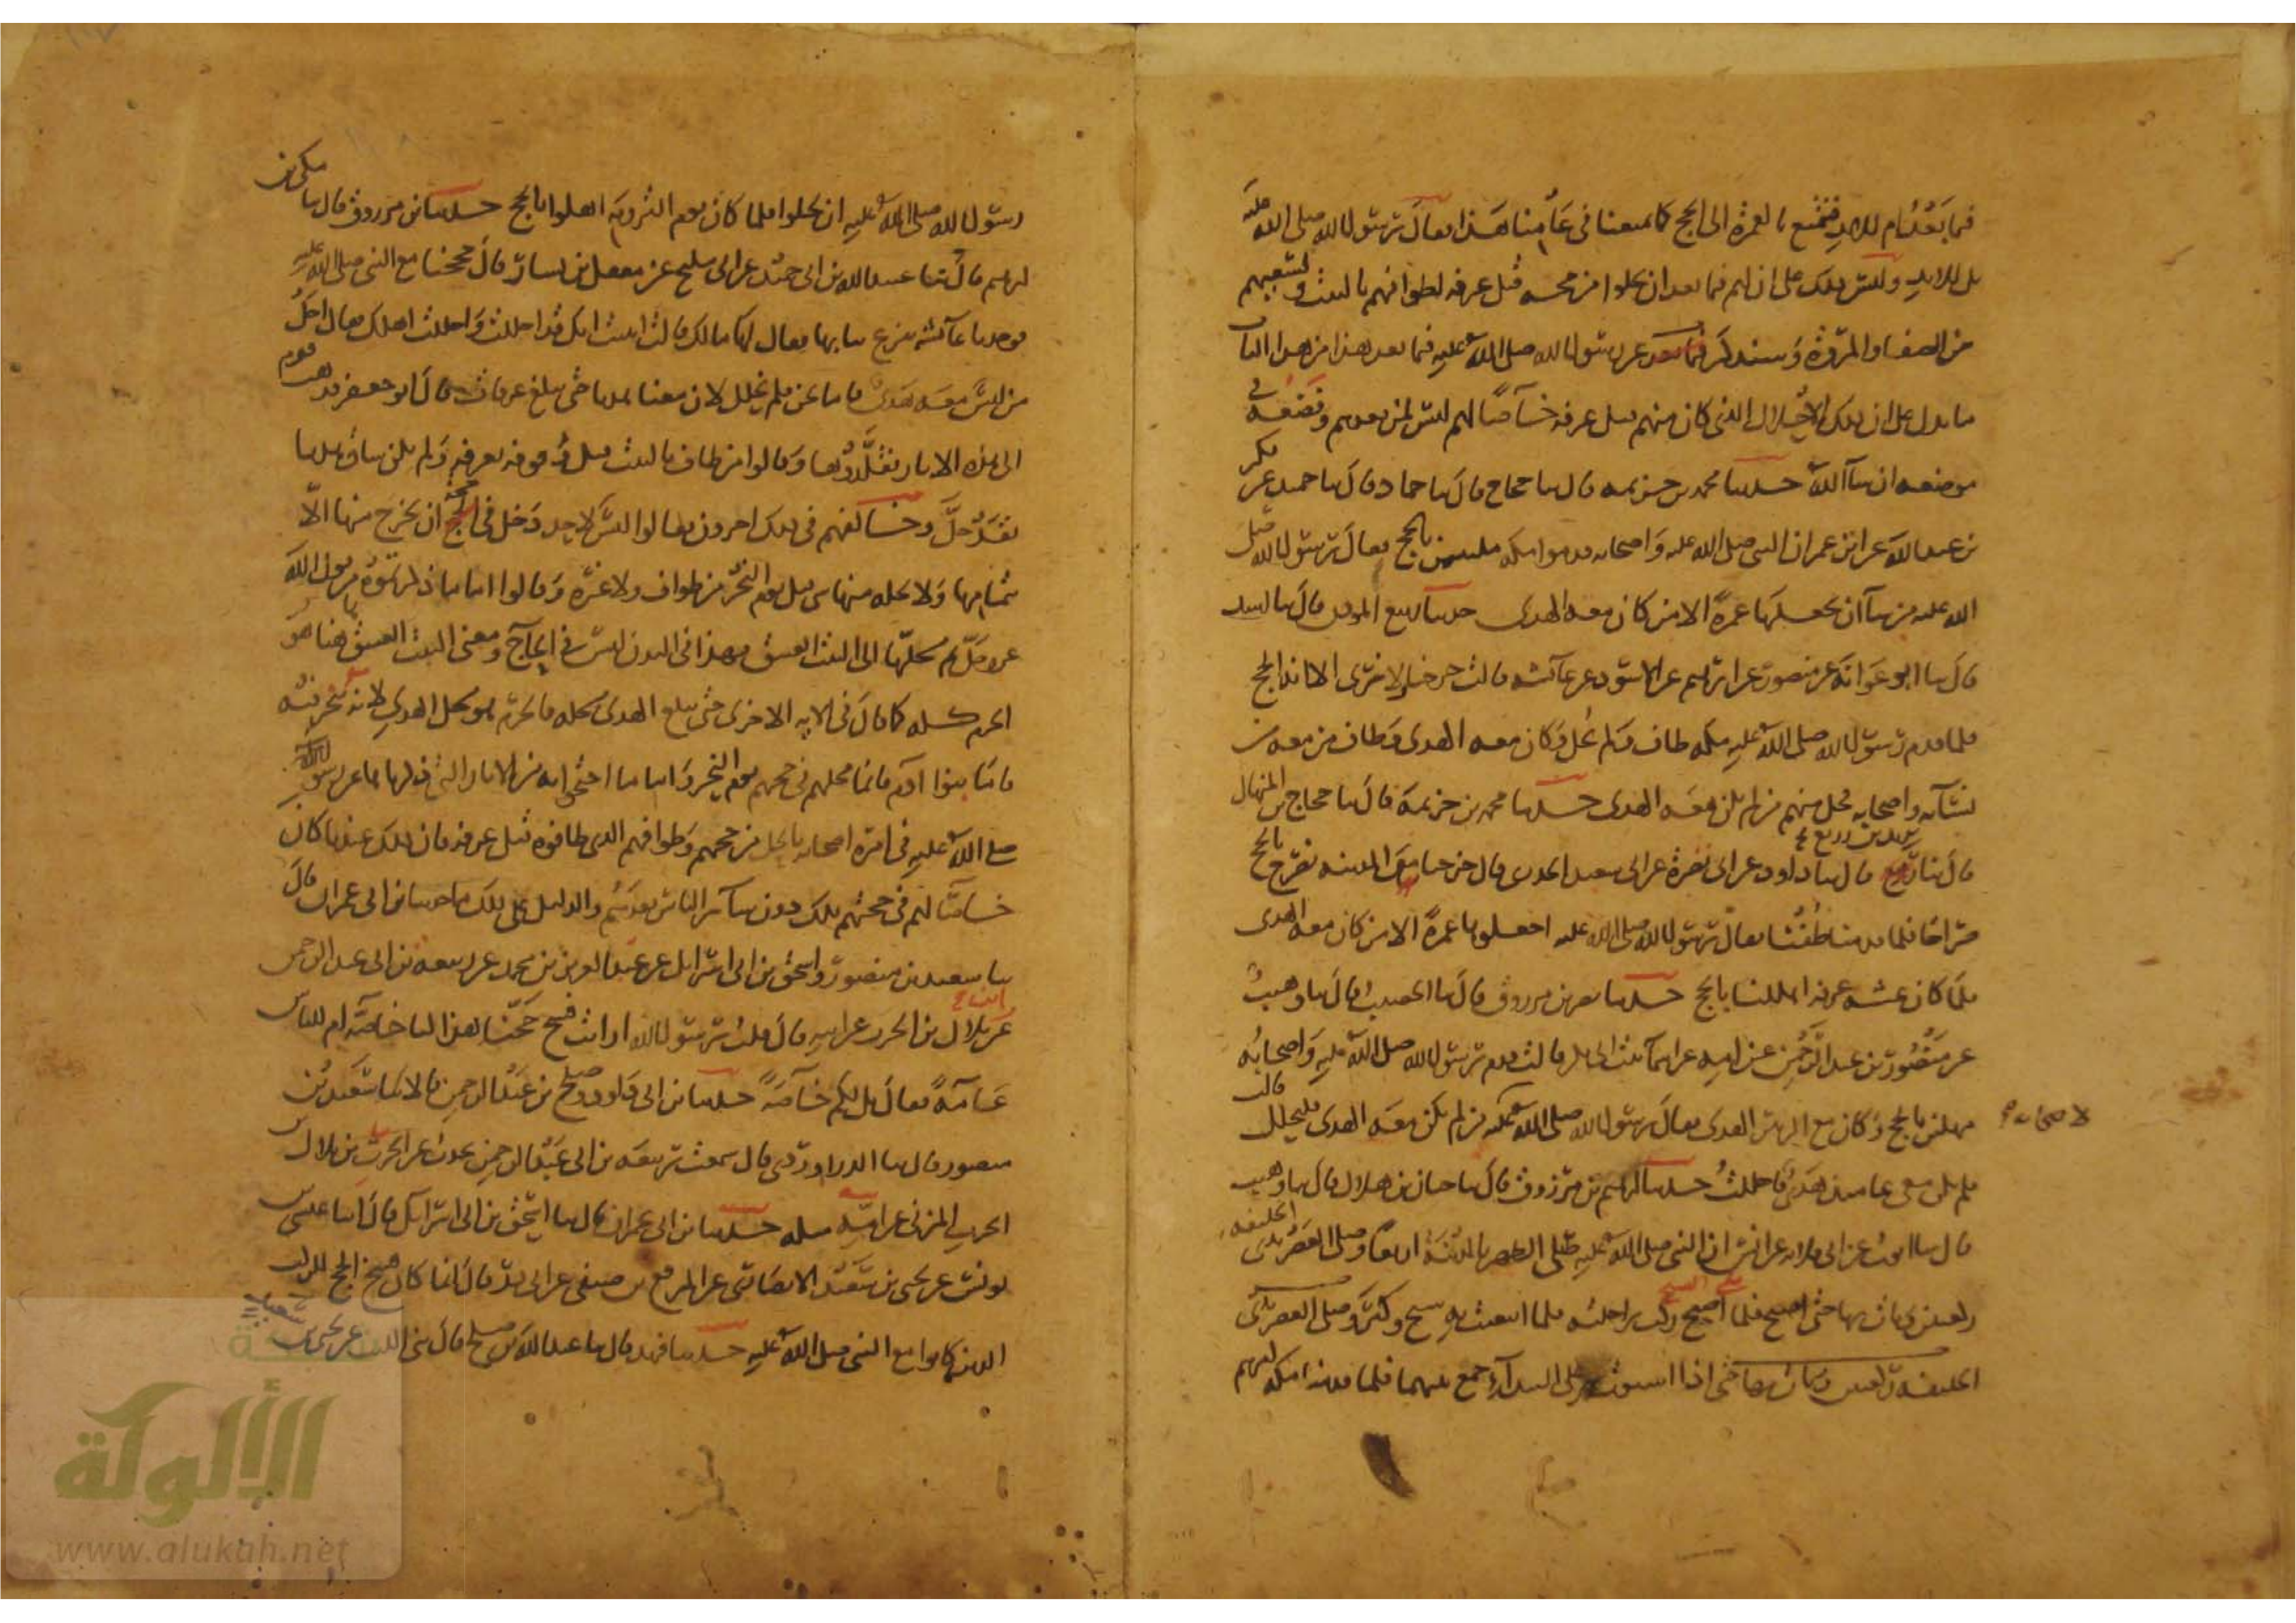 فيما بعد ام للابد فنتمتع بالعمرة الى الحج كما تمتعنا في عامنا هذا فقال رسول الله صلى الله عليه
بل للابد وليس ذلك على ان لهم فيما بعد ان يحلوا من حجهم قبل عرفة لطوافهم بالبيت ولسعيهم
من الصفا والمروة وسنذكر عن رسول الله صلى الله عليه فيما بعد هذا من هذا الباب
ما يدل على ان ذلك الاحلال الذي كان منهم قبل عرفة خاصا لهم ليس لمن بعدهم ونضعه في
موضعه ان شاء الله حدثنا محمد بن خزيمة قال ثنا حجاج قال ثنا حماد قال ثنا حميد عن بكر
بن عبد الله عن ابن عمر ان النبي صلى الله عليه واصحابه قدموا مكة ملبين بالحج فقال رسول الله صلى
الله عليه من شاء ان يجعلها عمرة الا من كان معه الهدى حدثنا ربيع المؤذن قال ثنا اسد
قال ثنا ابو عوانة عن منصور عن ابرهيم عن الاسود عن عائشة قالت خرجنا ولا نرى الا انه الحج
فلما قدم رسول الله صلى الله عليه مكة طاف ولم يحل وكان معه الهدى وطاف من معه من
نسائه واصحابه فحل منهم من لم يكن معه الهدى حدثنا محمد بن خزيمة قال ثنا حجاج بن المنهال
قال ثنا يزيد بن زريع قال ثنا داود عن ابى نضرة عن ابى سعيد الخدرى قال خرجنا من المدينة نصرخ بالحج
صراخا فلما قدمنا طفنا فقال رسول الله صلى الله عليه اجعلوها عمرة الا من كان معه الهدى
فلما كان عشية عرفة اهللنا بالحج حدثنا بن مرزوق قال ثنا الخصيب قال ثنا وهيب
عن منصور بن عبد الرحمن عن امه عن اسماء بنت ابى بكر قالت قدم رسول الله صلى الله عليه واصحابه
مهلين بالحج وكان مع الزبير الهدى فقال رسول الله صلى الله عليه لاصحابه من لم يكن معه الهدى فليحلل قالت
فلم يكن معى عامئذ هدى فاحللت حدثنا ابرهيم بن مرزوق قال ثنا حبان بن هلال قال ثنا وهيب
قال ثنا ايوب عن ابى قلابة عن انس ان النبي صلى الله عليه صلى الظهر بالمدينة اربعا وصلى العصر بذى الحليفة
ركعتين وبات بها حتى اصبح فلما صلى الصبح ركب راحلته فلما انبعثت به سبح وكبر وصلى العصر بذى
الحليفة ركعتين وبات بها حتى اذا استوت على البيداء جمع بينهما فلما قدمنا مكة امرهم
رسول الله صلى الله عليه ان يحلوا فلما كان يوم التروية اهلوا بالحج حدثنا بن مرزوق قال ثنا مكى بن
ابرهيم قال ثنا عبيد الله بن ابى حميد عن ابى مليح عن معقل بن يسار قال حججنا مع النبي صلى الله عليه
فوجدنا عائشة تنزع ثيابها فقال لها مالك قالت انبئت انك قد احللت واحللت اهلك فقال احل
من ليس معه هدى فاما نحن فلم نحلل لان معنا بدنا حتى نبلغ عرفات قال ابو جعفر فذهب قوم
الى هذه الاثار فتقلدوها وقالوا من طاف بالبيت قبل وقوفه بعرفة ولم يكن ساق هديا
فقد حل وخالفهم فى ذلك اخرون فقالوا ليس لاحد دخل فى حجة ان يخرج منها الا
بتمامها ولا يحله منها شى قبل يوم النحر من طواف ولا غيره وقالوا اما ما ذكرتموه من قول الله
عز وجل ثم محلها الى البيت العتيق فهذا فى البدن ليس فى الحاج ومعنى البيت العتيق ها هنا هو
الحرم كله كما قال فى الاية الاخرى حتى يبلغ الهدى محله فالحرم هو محل الهدي لانه ينحر فيه
فاما بنوا ادم فانما محلهم فى حجهم يوم النحر واما ما احتجوا به من الاثار التى ذكرناها عن رسول الله
صلى الله عليه فى امره اصحابه بالحل من حجهم وطوافهم الذى طافوه قبل عرفة فان ذلك عندنا كان
خاصا لهم فى حجتهم تلك دون سائر الناس بعدهم والدليل على ذلك ما حدثنا بن ابى عمران قال
ثنا سعيد بن منصور واسحق بن ابى اسرائيل عن عبد العزيز بن محمد عن ربيعة بن ابى عبد الرحمن
عن بلال بن الحرث عن ابيه قال قلت يا رسول الله ارايت فسخ حجنا هذا لنا خاصة ام للناس
عامة فقال بل لكم خاصة حدثنا بن ابى داود وصلح بن عبد الرحمن قالا ثنا سعيد بن
منصور قال ثنا الدراوردى قال سمعت ربيعة بن ابى عبد الرحمن يحدث عن الحرث بن بلال بن
الحرث المزنى عن ابيه مثله حدثنا بن ابى عمران قال ثنا اسحق بن ابى اسرائيل قال انا عيسى بن
يونس عن يحيى بن سعيد الانصارى عن المرقع بن صيفى عن ابى ذر قال انما كان فسخ الحج للركب
الذين كانوا مع النبي صلى الله عليه حدثنا فهد قال ثنا عبد الله بن صلح قال ثنى الليث عن يحيى بن سعيد
الألوكة
www.alukah.net